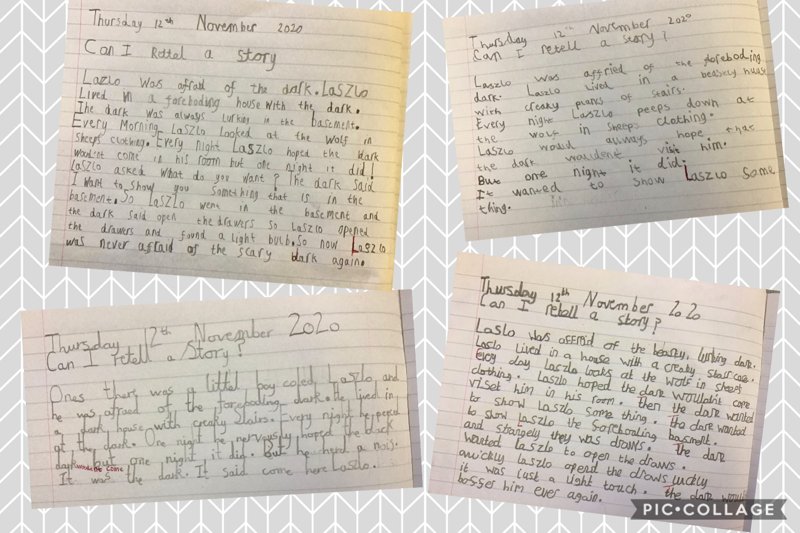 Thursday 12th November 2020
Can I Rettel a Story
Lazlo was afraid of the dark. Laszlo
Lived in a foreboding house with the dark.
The dark was always lurking in the basement.
Every Morning Laszlo Looked at the Wolf in
sheeps clothing. Every night Laszlo hoped the dark
wouldn't come in his room but one night it did!
Laszlo asked what do you want? The dark said
I want to show you something that is in the
basement. So Laszlo went in the basement and
the dark said open the drawers so Laszlo opened
the drawers and found a light bulb. So now Laszlo
was never afraid of the scary dark again.
Thursday 12th November 2020
Can I retell a story?
Laszlo was affried of the foreboding
dark. Laszlo lived in a beaskly house
with creaky planks of stairs.
Every night Laszlo peeps down at
the wolf in sheeps clothing.
Laszlo would always hope that
the dark wouldent visit him.
But one night it did.
It wanted to show Laszlo some
thing.
Thursday 12th November 2020
Can I retell a Story?
Ones there was a littel boy coled Laszlo and
he was afraid of the foreboding dark. He lived in
a dark house with creaky stairs. Every night he peeped
at the dark. One night he nervously hoped the
dark wouldn't come but one night it did. But he heard a nois.
It was the dark. It said come here Laszlo.
Thursday 12th November 2020
Can I retell a story?
Laslo was afferid of the beasky, lurking dark.
Laslo Lived in a house with a creaky staircase.
Every day Laszlo looks at the wolf in sheeps
clothing. Laszlo hoped the dark wouldn't come
viset him in his room. then the dark wanted
to show Laszlo some thing. The dark wanted
to show Laszlo the foreboding basment.
and strangely they was draws. The dark
wanted Laszlo to open the draws.
quickly Laszlo opend the draws luckly
it was just a light touch. The dark would
bosser him ever again.
PIC•COLLAGE